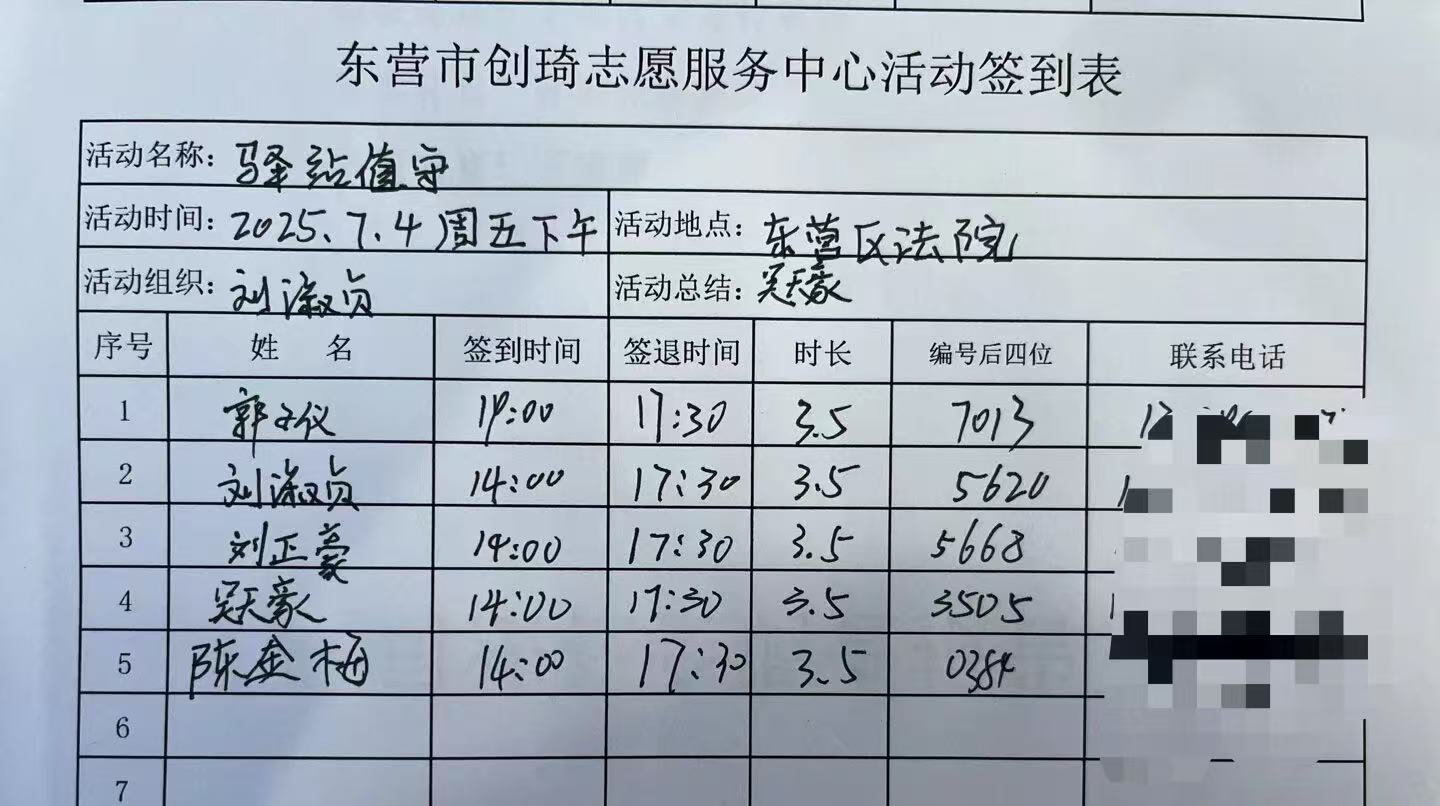 东营市创琦志愿服务中心活动签到表
活动名称：驿站值守
活动时间：2025.7.4周五下午 活动地点：东营区法院
活动组织：刘淑贞 活动总结：吴天豪
序号 姓名 签到时间 签退时间 时长 编号后四位 联系电话
1 郭子仪 14:00 17:30 3.5 7013
2 刘淑贞 14:00 17:30 3.5 5620
3 刘正豪 14:00 17:30 3.5 5668
4 吴天豪 14:00 17:30 3.5 3505
5 陈金梅 14:00 17:30 3.5 0384
6
7